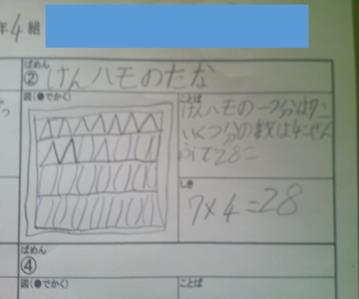 年4組
ばめん
②けんハモのたな
図(●でかく)
ことば
けんハモの一つ分は7こ
いくつ分の数は4こぜん
ぶで28こ
しき
7×4=28
ばめん
④
図(●でかく)
ことば